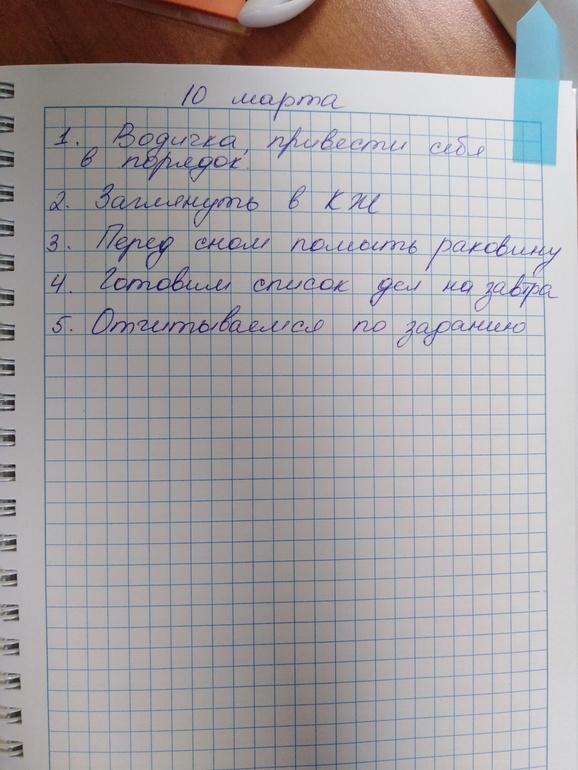 10 марта
1. Водичка, привести себя
в порядок.
2. Заглянуть в КЖ
3. Перед сном помыть раковину
4. Готовим список дел на завтра
5. Отчитываемся по заданию